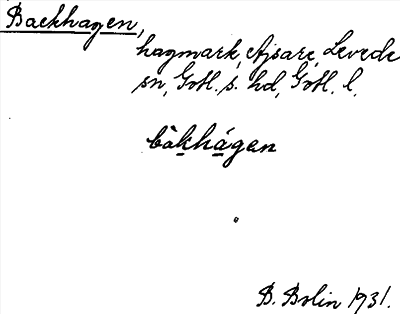 Backhagen,
hagmark, Ajsare, Levede
sn, Gotl. s. hd, Gotl. l.
bàkhágen
B. Bolin 1931.